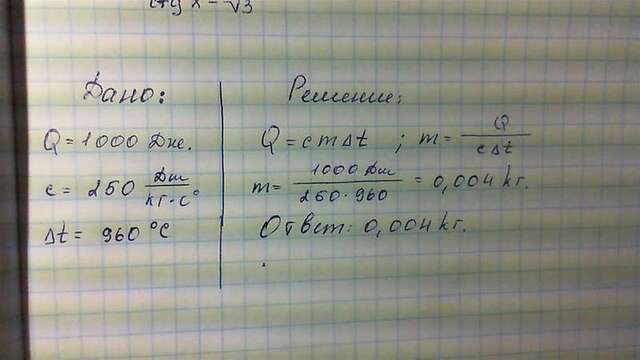 ctg x - √3
Дано:
Q = 1000 Дж.
c = 250 Дж / кг·с°
Δt = 960 °C
Решение:
Q = c m Δt ; m = Q / c Δt
m = 1000 Дж / 250·960 = 0,004 кг.
Ответ: 0,004 кг.